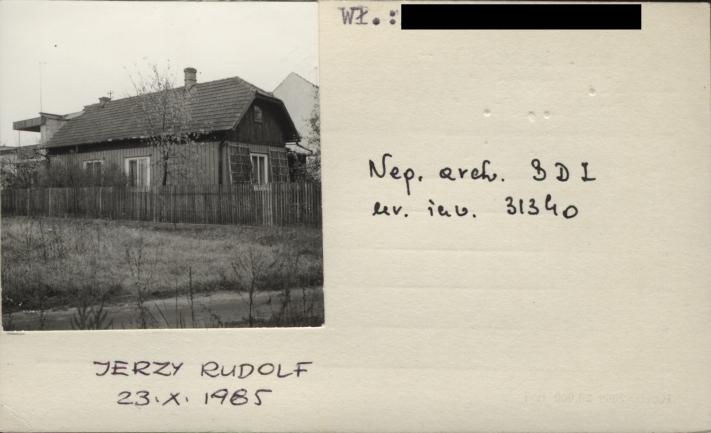 Wł.:
Neg. arch. BDZ
nr. inw. 31340
JERZY RUDOLF
23.X.1985